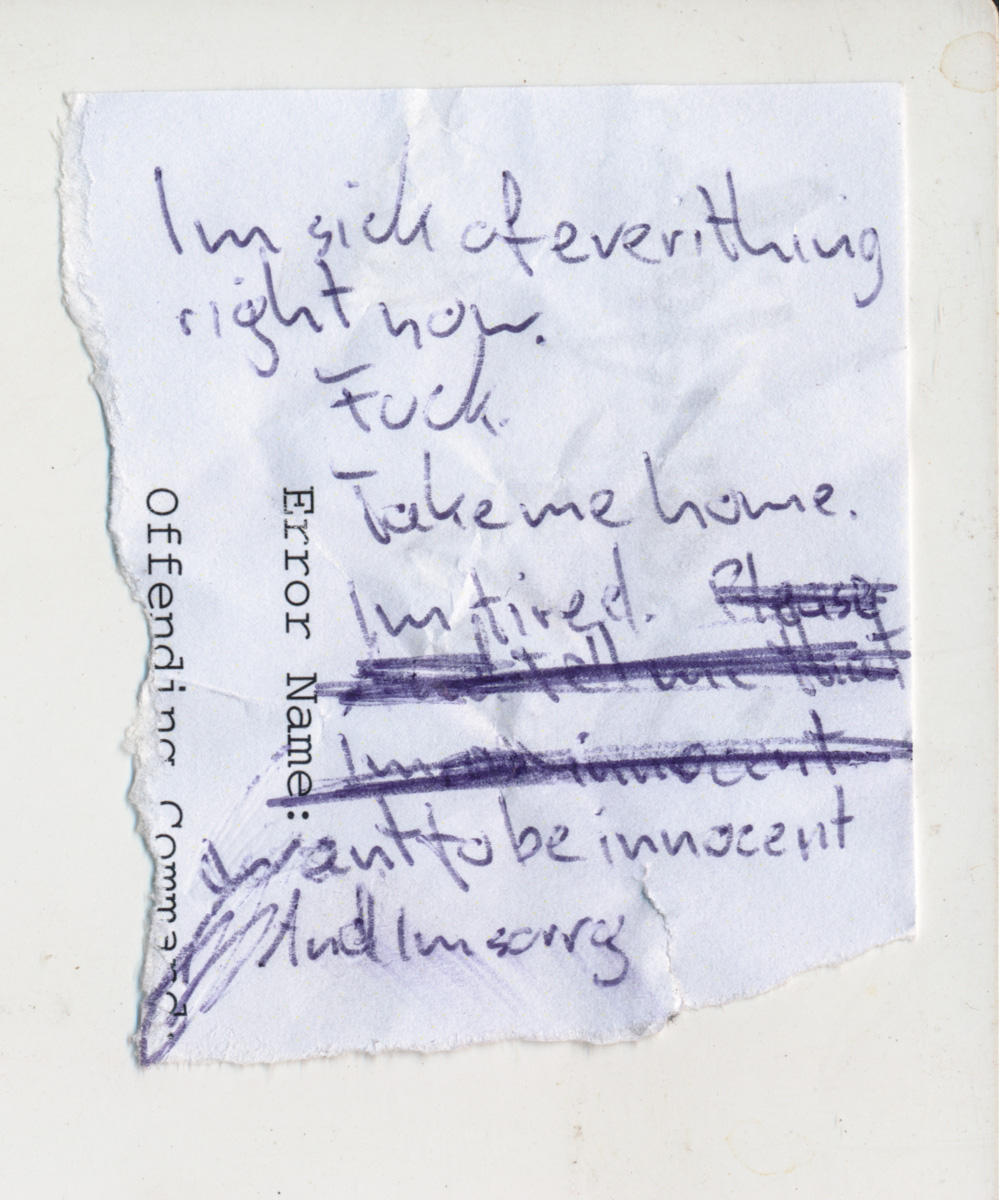 Im sick of everithing
right now.
Fuck.
Take me home.
Im tired. Please
tell me that
Im innocent
I want to be innocent
And Im sorry
Error Name:
Offending Command: